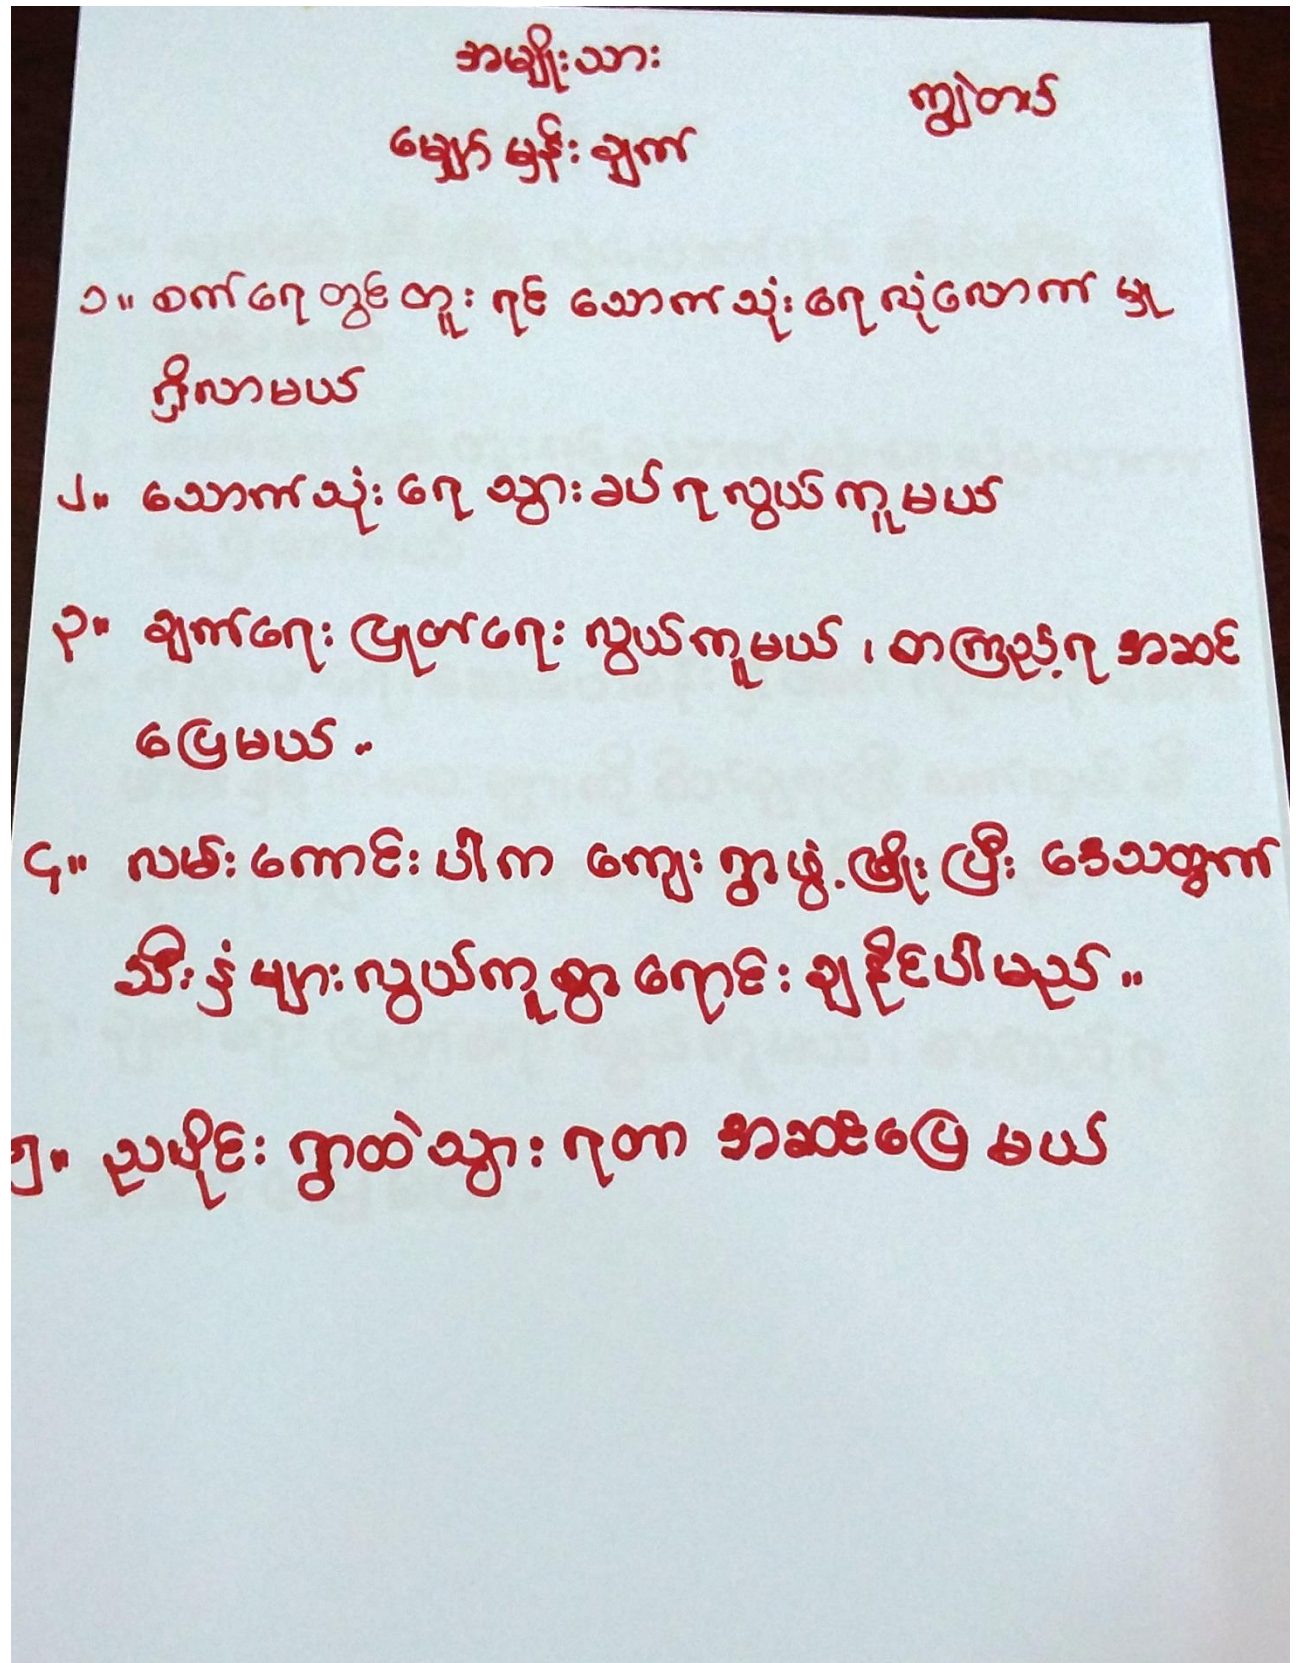 အမျိုးသား
ကျွဲတပ်
မျှော်မှန်းချက်
၁။ စက်ရေတွင်းတူးရင် သောက်သုံးရေလုံလောက်မှု
ရှိလာမယ်
၂။ သောက်သုံးရေ သွားခပ်ရလွယ်ကူမယ်
၃။ ချက်ရေးပြုတ်ရေး လွယ်ကူမယ်၊ စာကြည့်ရ အဆင်
ပြေမယ်။
၄။ လမ်းကောင်းပါက ကျေးရွာဖွံ့ဖြိုးပြီး ဒေသထွက်
သီးနှံများလွယ်ကူစွာ ရောင်းချနိုင်ပါမည်။
၅။ ညပိုင်း ရွာထဲသွားရတာ အဆင်ပြေမယ်